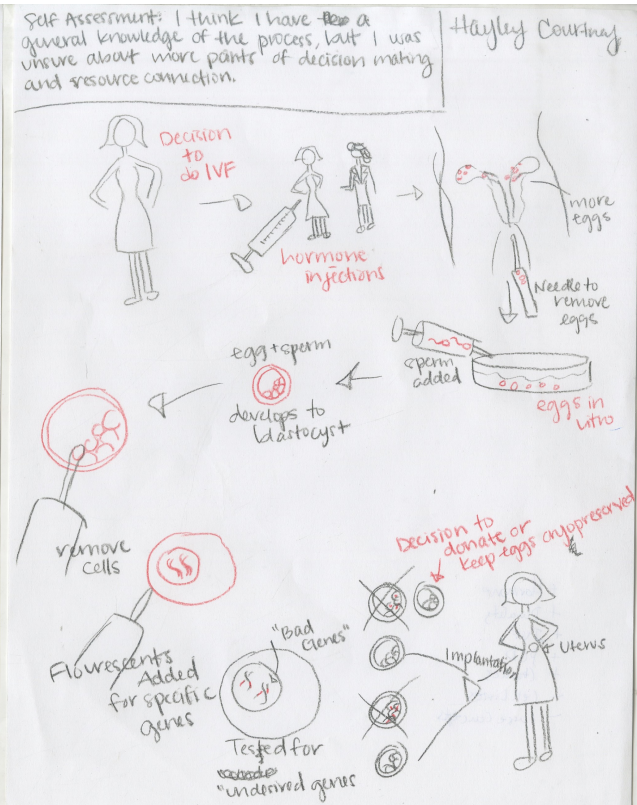 Self Assessment: I think I have a
general knowledge of the process, but I was
unsure about more parts of decision making
and resource connection.
Hayley Courtney
Decision
to
do IVF
hormone
injections
more
eggs
Needle to
remove
eggs
sperm
added
eggs in
vitro
egg + sperm
develops to
blastocyst
remove
cells
Flourescents
Added
for specific
genes
"Bad
Genes"
Tested for
"undesired genes
Decision to
donate or
keep eggs cryopreserved
Implantation
Uterus